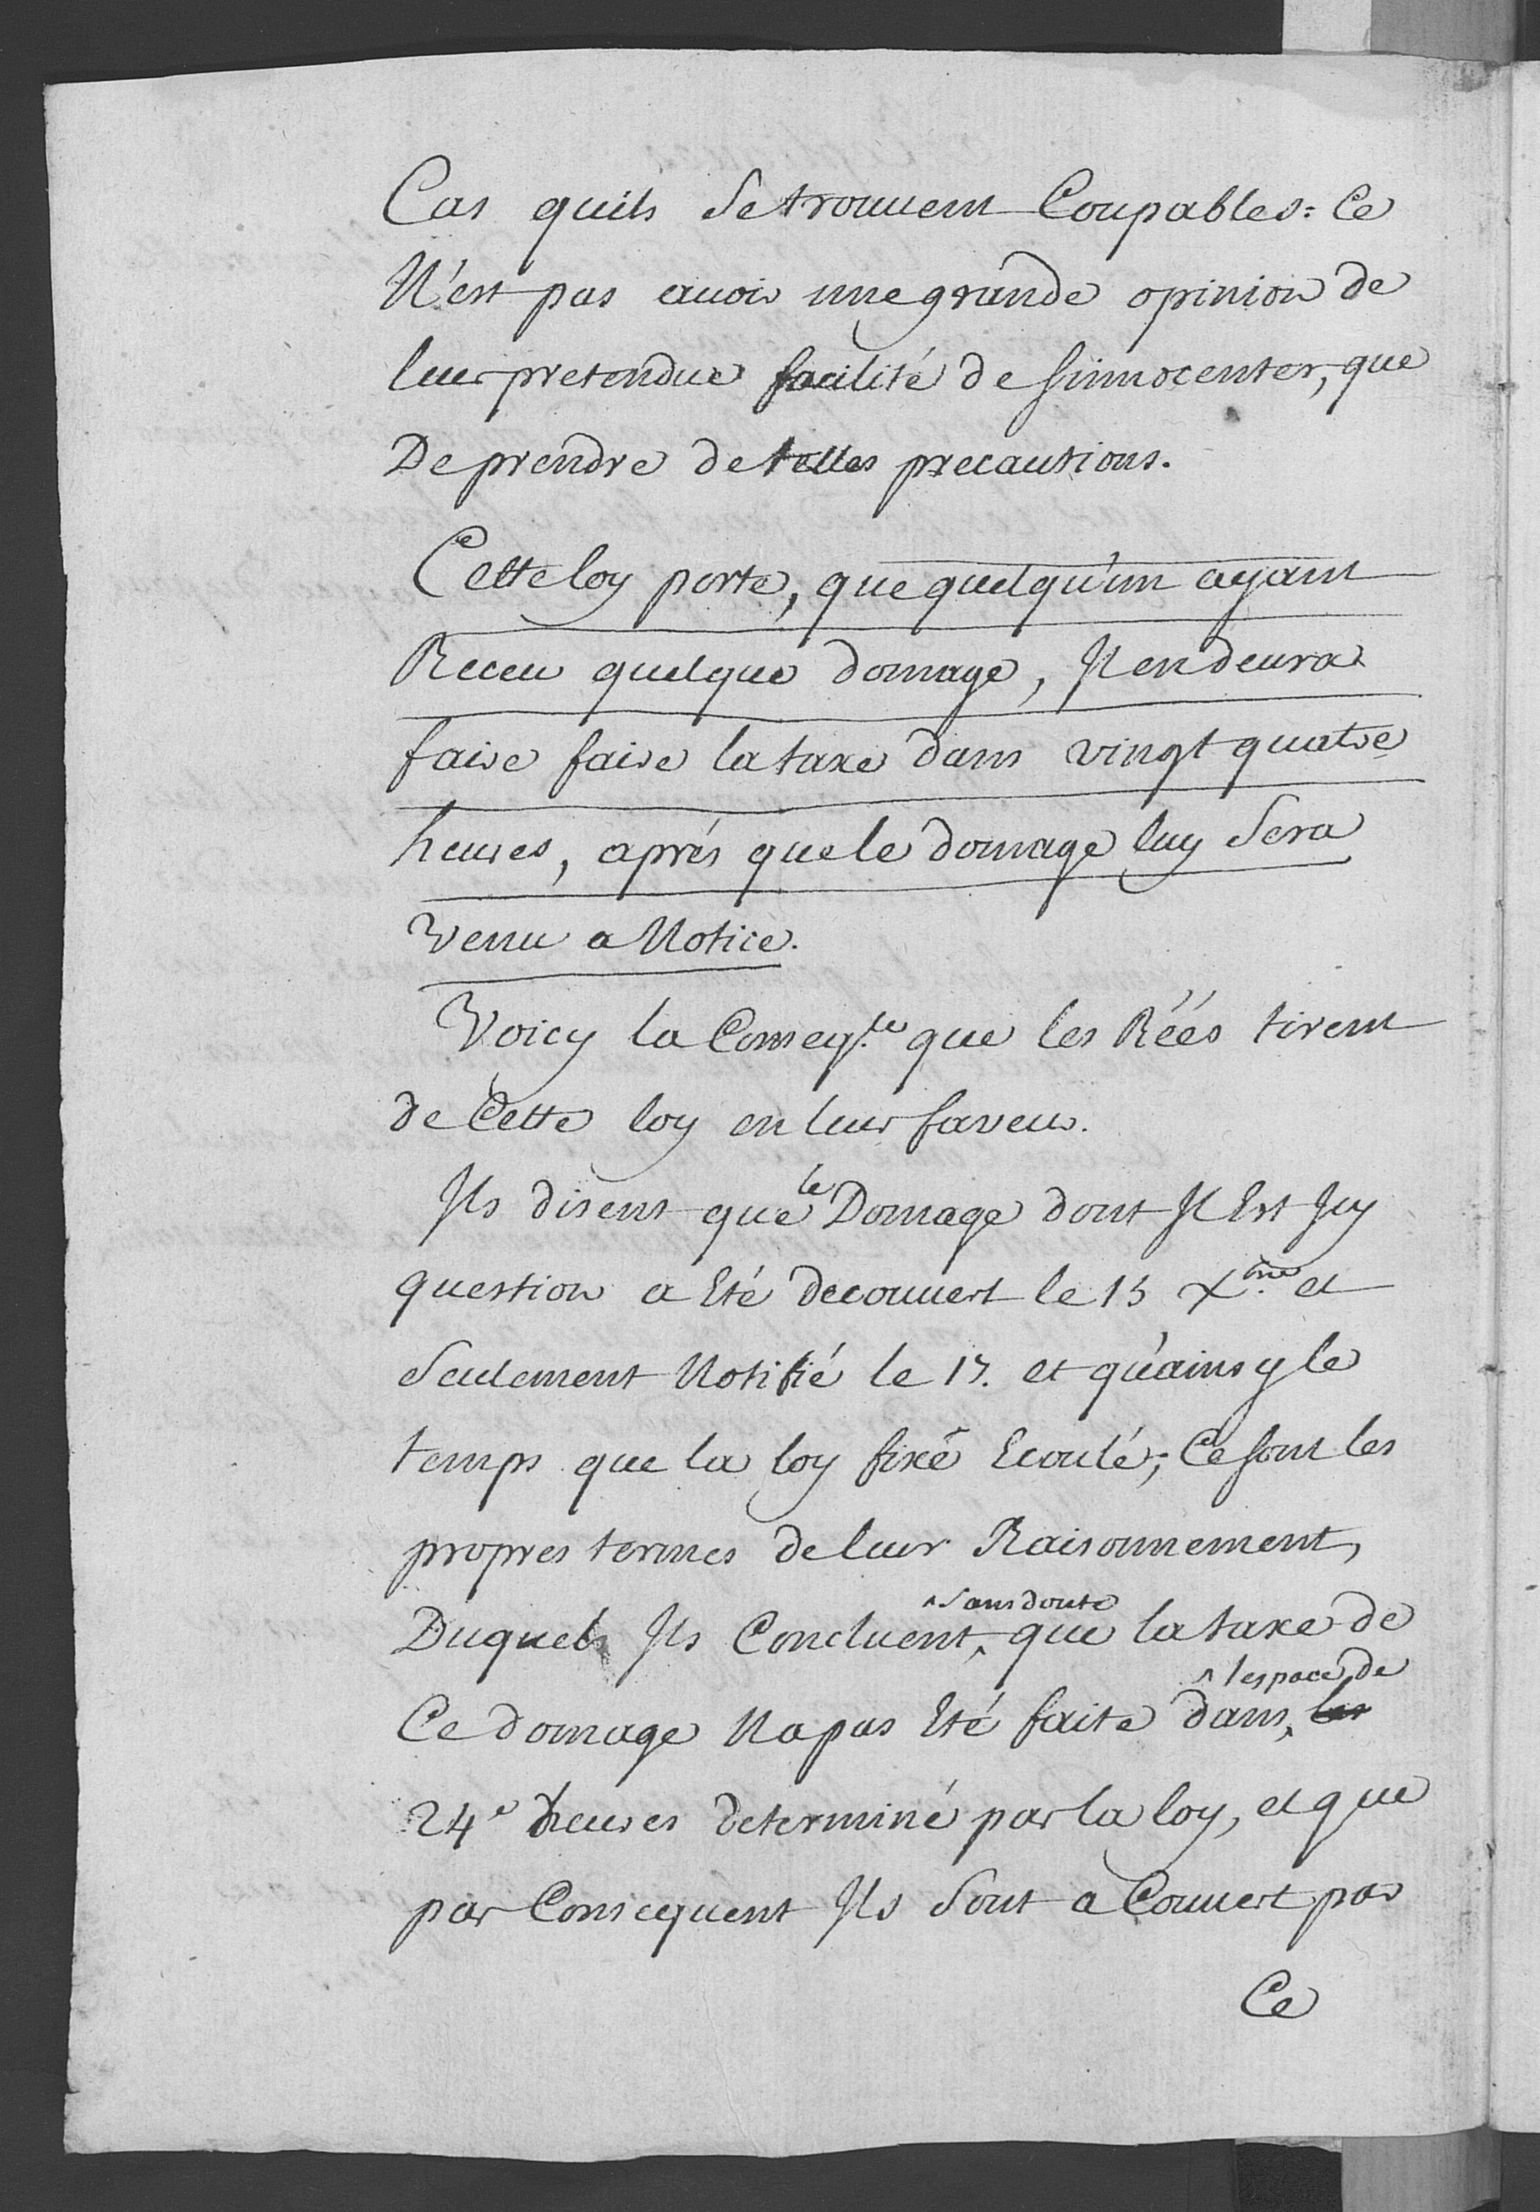 Cas quils Se trouvent Coupables: Ce
N'est pas avoir une grande opinion de
leur pretendue facilité de sinnocenter, que
De prendre de telles precautions.
Cette loy porte, que quelqu'un ayant
Receu quelque domage, Il en devra
faire faire la taxe dans vingt quatre
heures, aprés que le domage luy Sera
Venu a Notice.
Voicy la Conseq.ce que les Réés tirent
de Cette loy en leur faveur.
Ils disent que le Domage dont Il Est Icy
question a Eté decouvert le 15 Xbre et
Seulement Notifié le 17. et qu'ainsy le
temps que la loy fixé Ecoulé; Ce sont les
propres termes de leur Raisonnement,
Duquel Ils Concluent, sans doute que la taxe de
Ce domage Na pas Eté faite dans, l'espace de les
24e heures determiné par la loy, et que
par Consequent Ils Sont a Couvert par
Ce